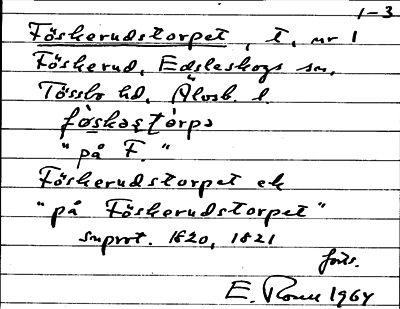 1-3
Föskerudstorpet, T, nr 1
Föskerud, Edsleskogs sn,
Tössbo hd, Älvsb. l.
fø̀skəsʈɔ́rpə
"på F."
Föskerudstorpet ek
"på Föskerudstorpet"
snprot. 1820, 1821
forts.
E. 1964